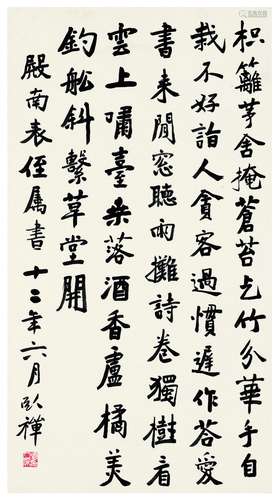 枳籬茅舍掩蒼苔乞竹分華手自
栽不好詣人貪客過慣遲作荅愛
書来閒窓聽雨攤詩卷獨樹看
雲上嘯臺桒落酒香盧橘美
釣舩斜繫草堂開
殿南表侄属書十二年六月臥禪